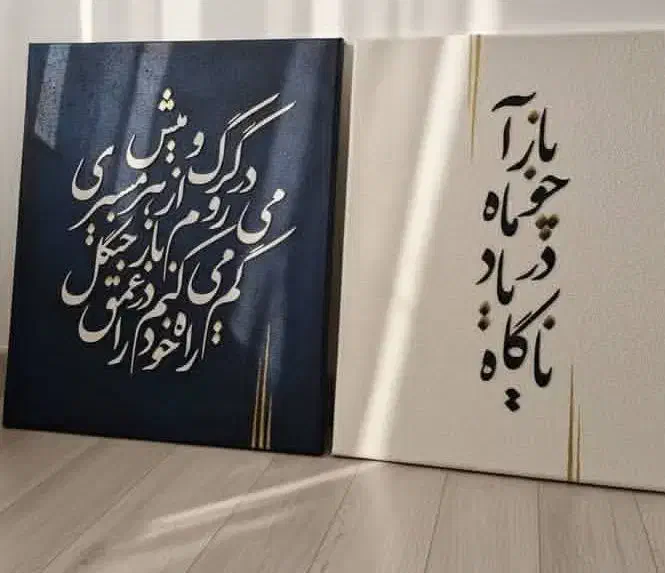 در گرگ و میش
می روم از هر مسیری
گم می کنم در عمق جنگل باز
راه خود را
باز آ
چو ماه
در یاد
ناگاه